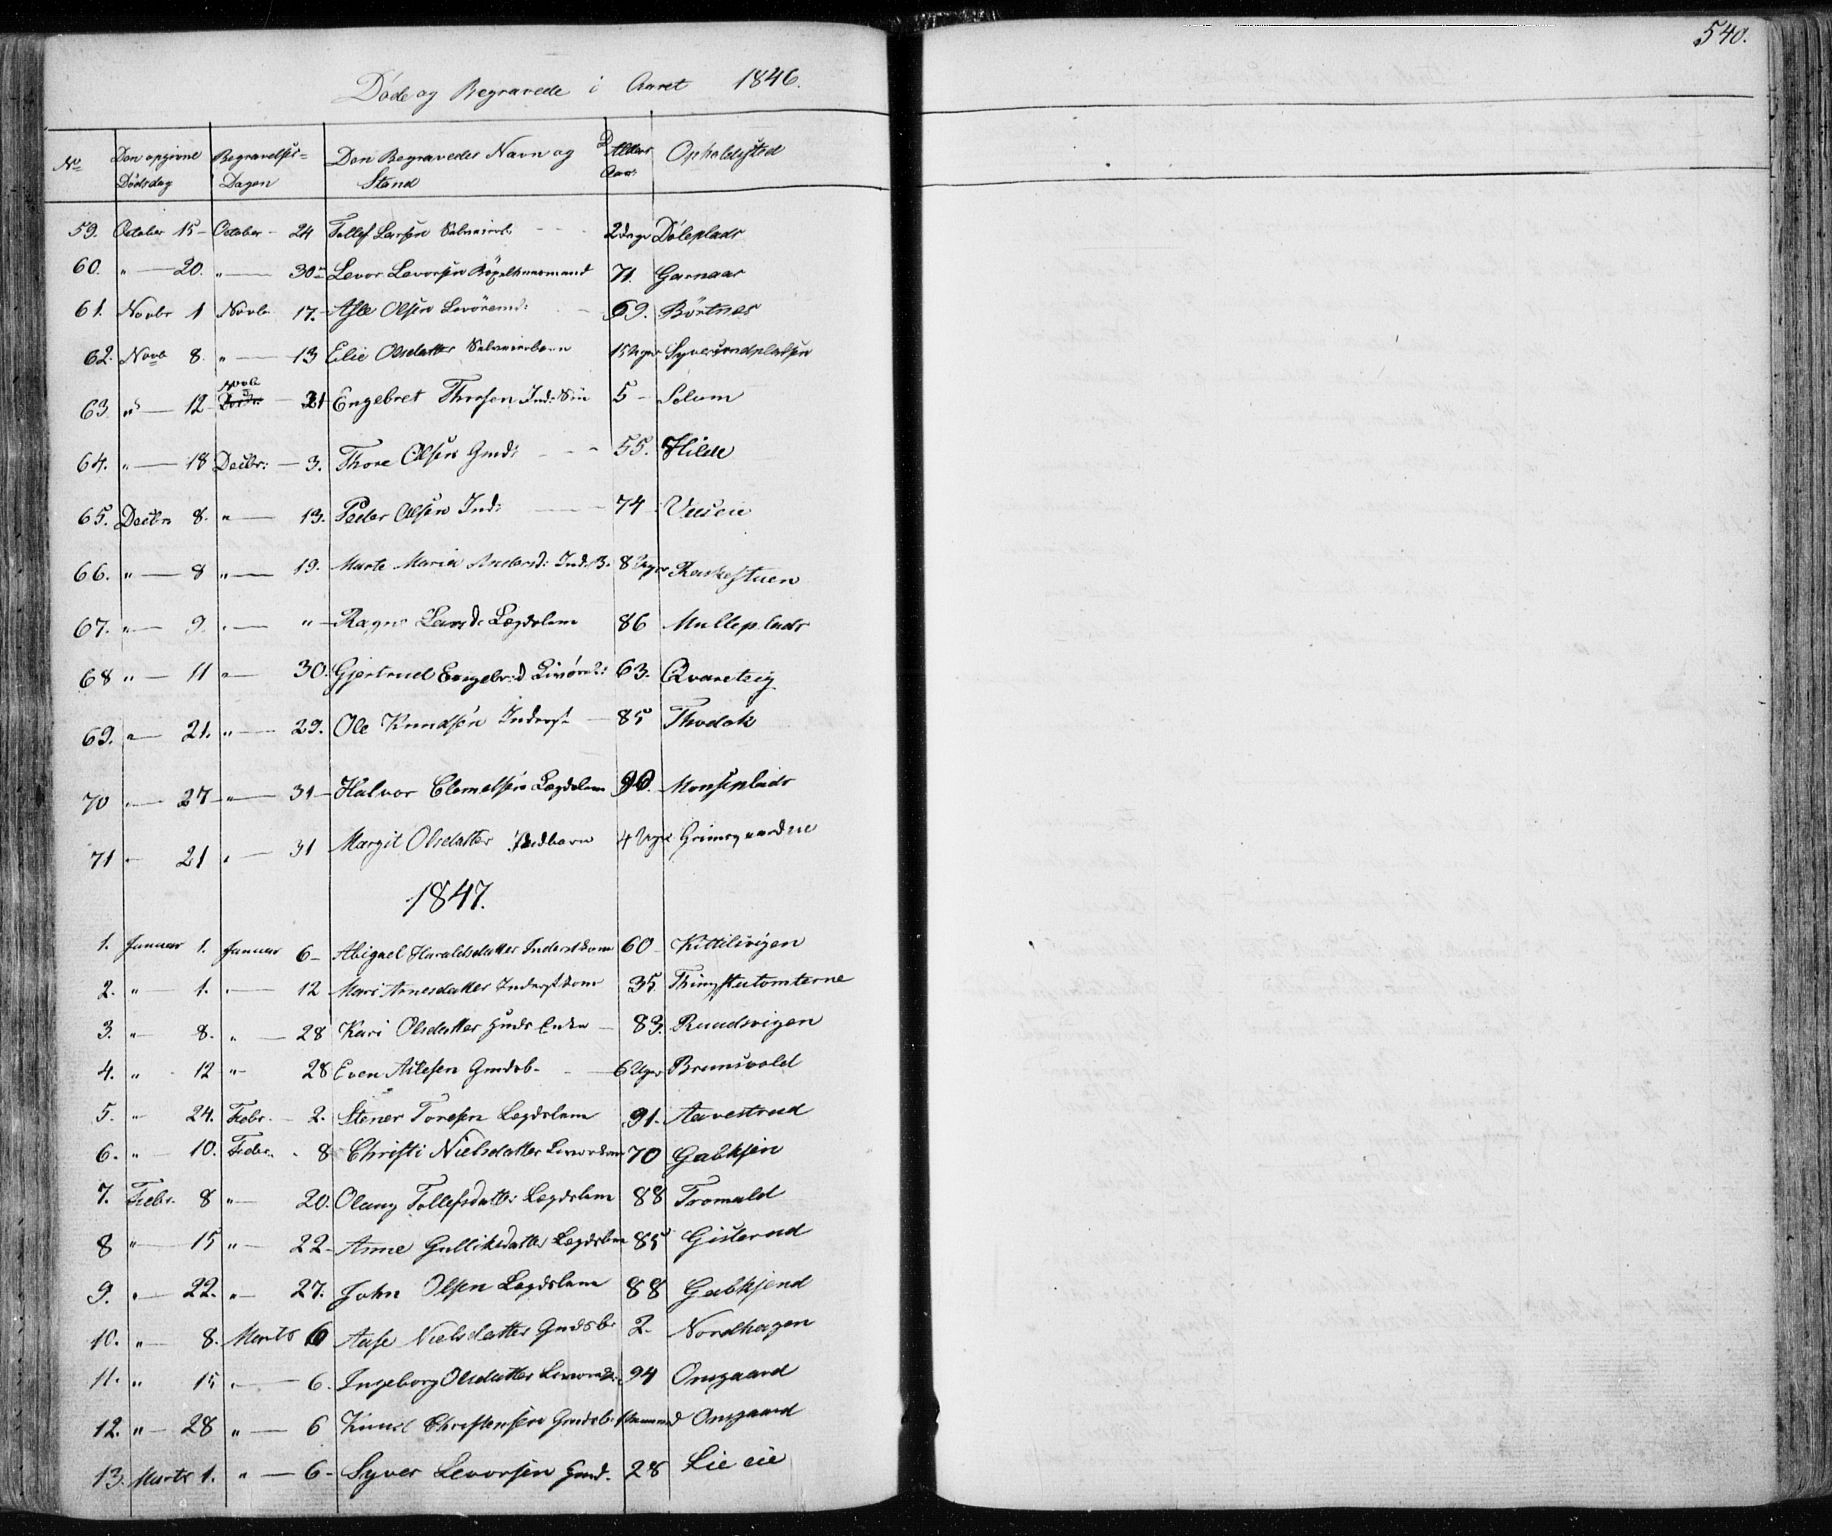 540.
Døde og Begravede i Aaret 1846.
No Den opgivne Dødsdag Begravelses- Dagen Den Begravedes Navn og Stand Alder Aar Opholdssted
59. October 15 - October - 24 Tollef Larsen 2 Dage Døleplads
60. " - 20. " - 30 Levor Levorsen 71. Garnaas
61. Novbr 1 Novbr 17. - Asle Olsen 69. Børtnes
62. Novb 8. " - 13 Elie Olsdatter Selveierbarn 15 Uger
63 " - 12 Novb 21 Engebret Thorsen Ind: Søn 5 - Solum
64. " - 18 Decbr: - 3. Thore Olsen Gmd: - - 55. Hilde
65. Decbr 8. " - 13. Peder Olsen Ind: 74 -
66. " - 8 " - 19. Marte Maria Andersd: Ind: B. 8 Uger Raskestuen
67. " - 9. " - " - Ragne Larsd: Lægdslem 86 Mulleplads
68 " - 11 " - 30. Gjertrud Engebr:d 63. Qvareteig
69. " - 21. " - 29. Ole Knudsen Inderst - 85 Thodok
70 " - 27 " - 31 - Halvor Clemetsen Lægdslem 90. Monseplads
71 " - 21 " - 31 Margit Olsdatter Indbarn 4 Uger Grimsgaardeie
1847.
1. Januar 1. Januar 6 - Abigael Haraldsdatter Inderstkone 60 - Kittilsvigen
2. " - 1. " - 12 Mari Arnesdatter Inderstkone 35 Thingstutomterne
3. " 8. " - 28 Kari Olsdatter Gmds Enke - 83. Ruudsvigen
4. " - 12 " 28 Even Aslesen Gmdsb. - 6 Uger Brunsvold
5. " 24. Febr. - 2. Stener Toresen Lægdslem 91. Aavestrud
6. " - 10. Febr. - 8 Christi Nielsdatter 70 Golbksein
7. Febr. 8 " - 20. Olaug Tollefsdatter Lægdslem 88 Tromald
8 " - 15 " - 22 - Anne Gulliksdatter Lægdslem 85 Gislerud
9. " - 22. " - 27. John Olsen Lægdslem 88
10. " - 8. Marts 6 Aase Nielsdatter Gmdsb. 2. Nordhagen
11. " 15 " - 6. Ingeborg Olsdatter 94 Onsgaard
12. " - 28 " - 6 Knud Christensen Gmdsb. 1 Onsgaard
13. Marts 1. " - 6 - Syver Levorsen Gmd. 28 Lie eie